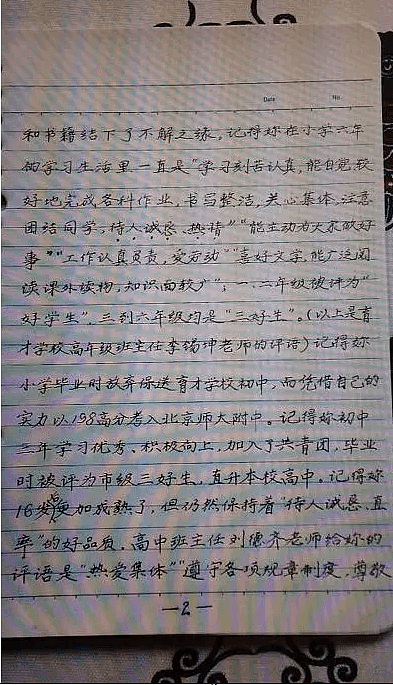 Date No.
和书籍结下了不解之缘。记得妳在小学六年
的学习生活里一直是“学习刻苦认真,能自觉较
好地完成各科作业,书写整洁,关心集体,注意
团结同学,待人诚恳、热情”“能主动为大家做好
事”“工作认真负责,爱劳动”“喜好文学,能广泛阅
读课外读物,知识面较广”;一、二年级被评为“
好学生”,三到六年级均是“三好生”。(以上是育
才学校高年级班主任李瑞坤老师的评语)记得妳
小学毕业时放弃保送育才学校初中,而凭借自己的
实力以198高分考入北京师大附中。记得妳初中
三年学习优秀、积极向上,加入了共青团,毕业
时被评为市级三好生,直升本校高中。记得妳
16岁更加成熟了,但仍然保持着“待人诚恳、直
率”的好品质。高中班主任刘德齐老师给妳的
评语是“热爱集体”“遵守各项规章制度,尊敬
—2—